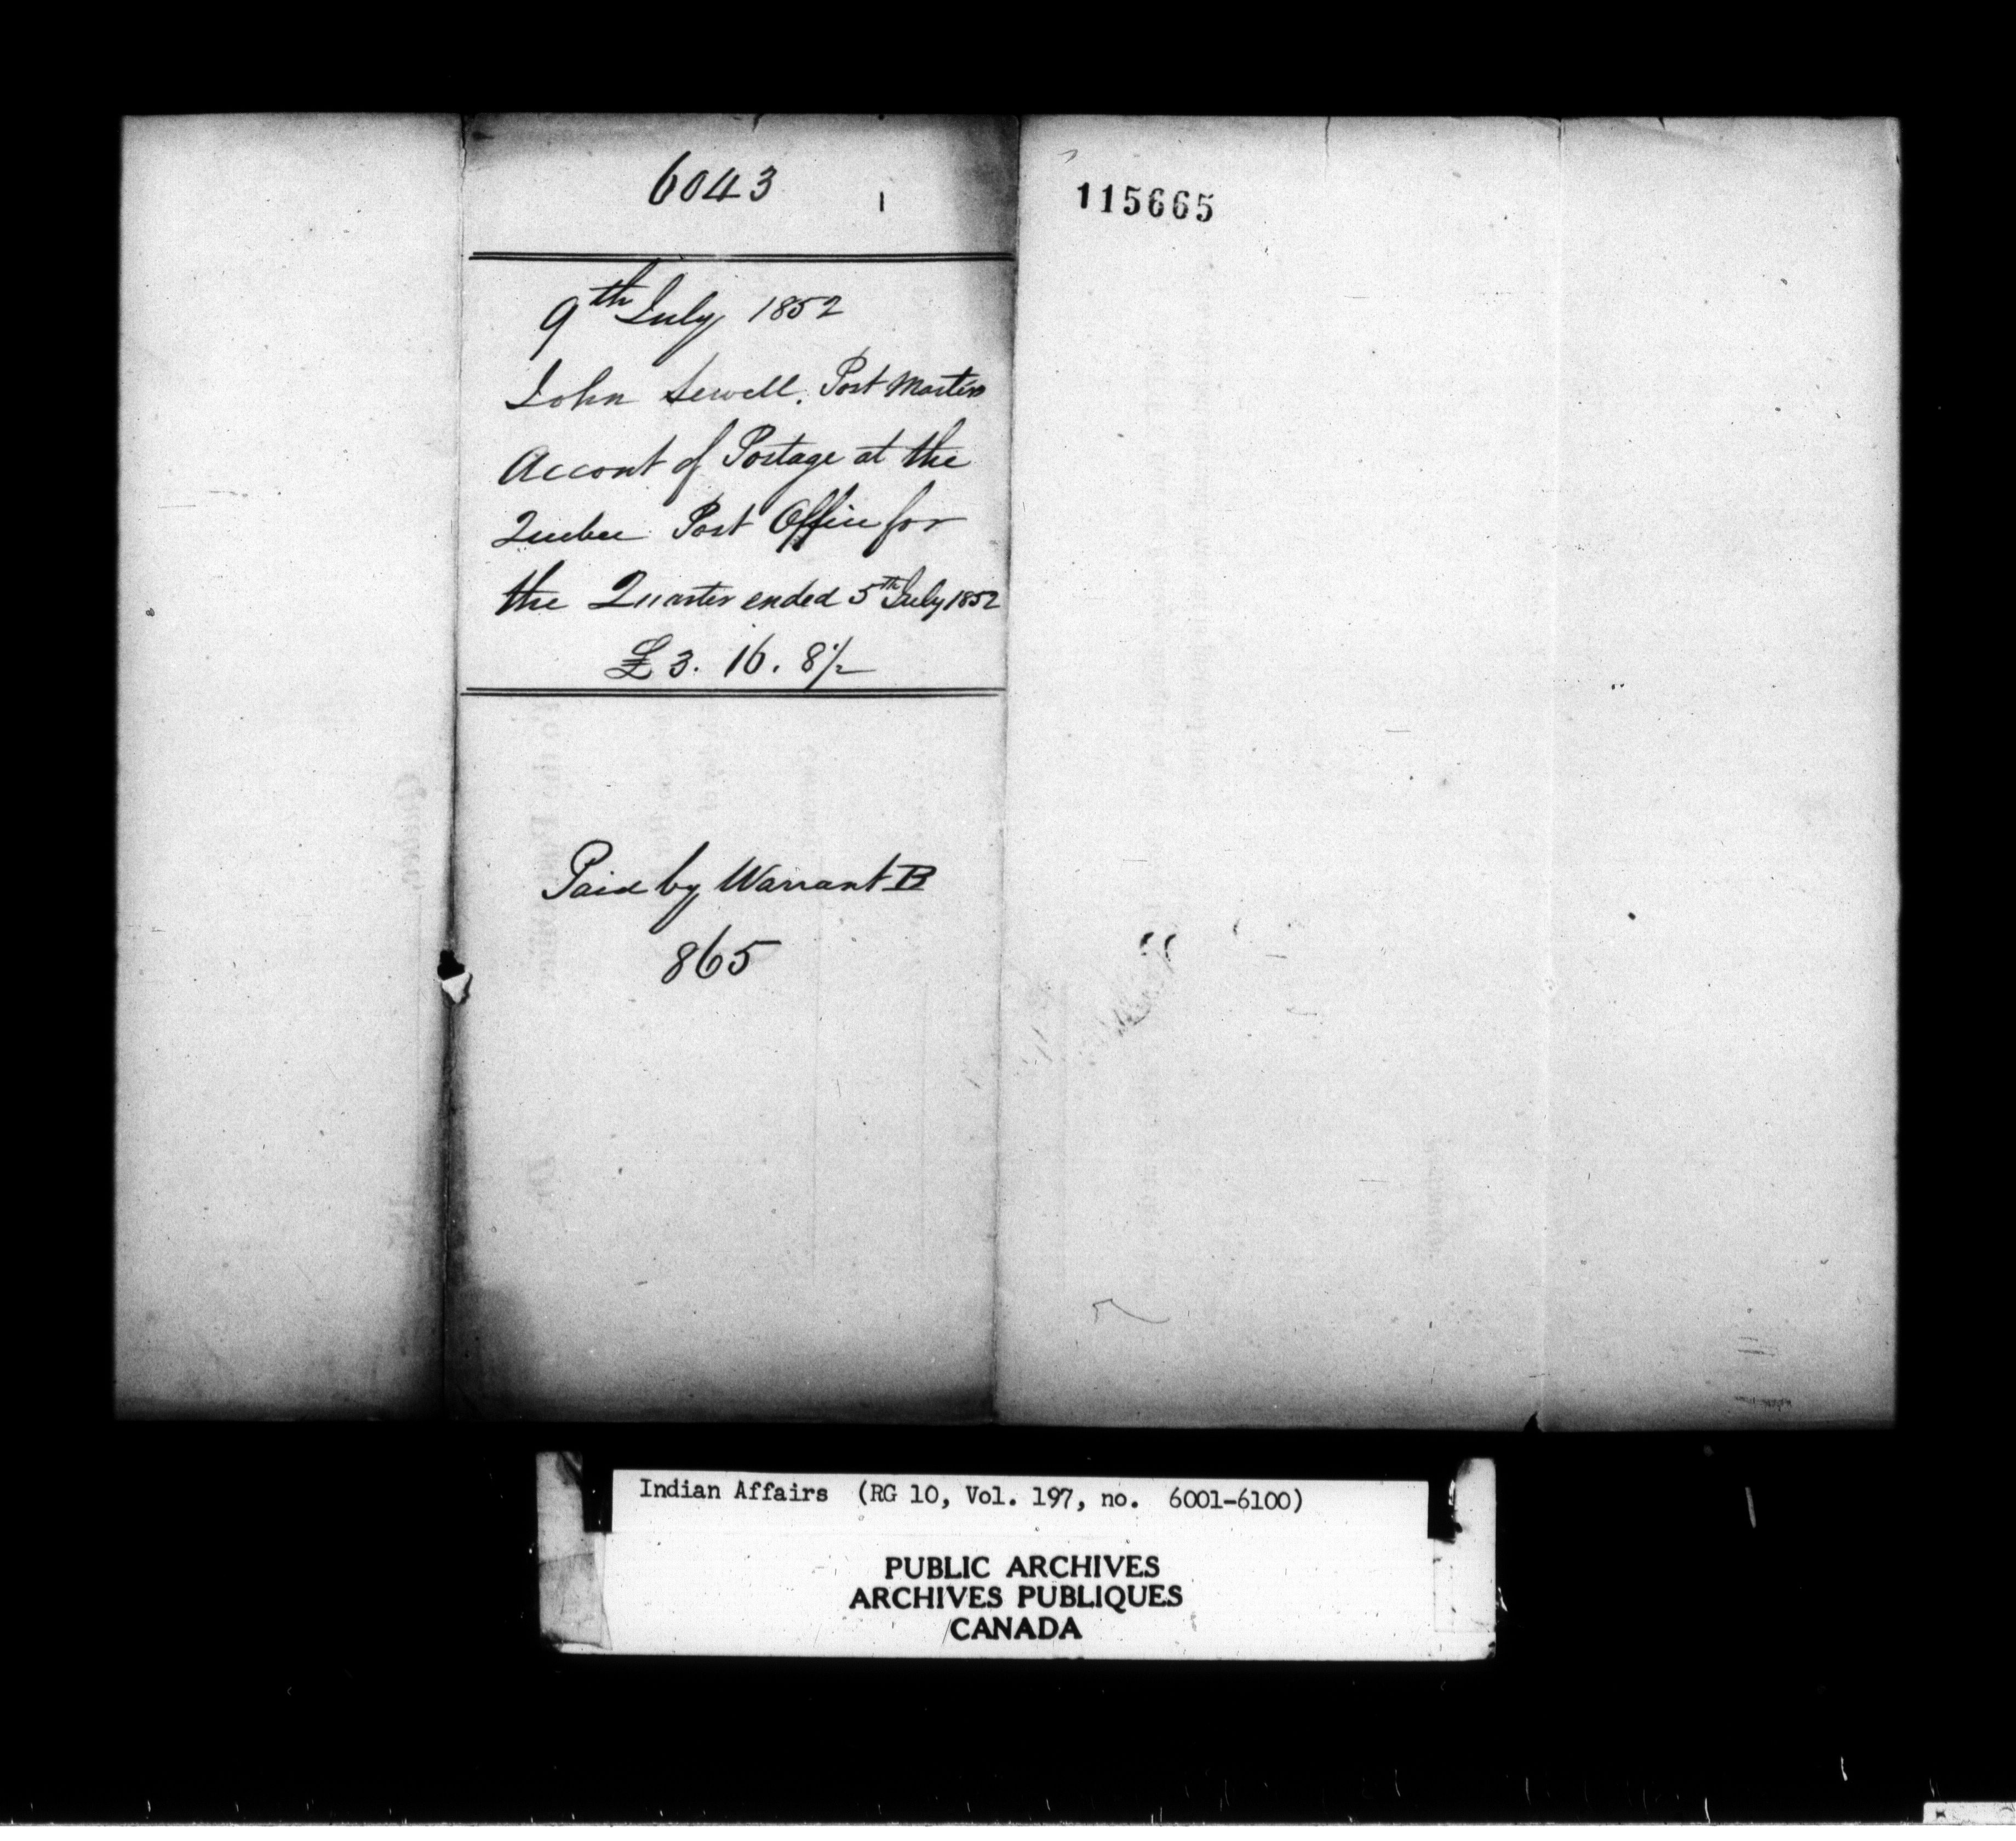 6043
115665
9th July 1852
John Sewell. Post Masters
Accont of Postage at the
Quebec Post Office for
the Quarter ended 5th July 1852
£3. 16. 8 1/2
Paid by Warrant B
865
Indian Affairs (RG 10, Vol. 197, no. 6001-6100)
PUBLIC ARCHIVES
ARCHIVES PUBLIQUES
CANADA